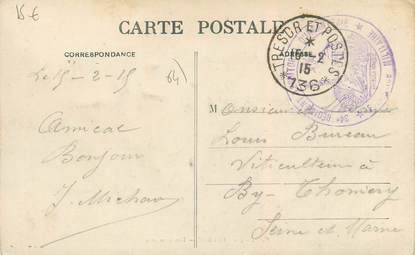 15 €
CARTE POSTALE
CORRESPONDANCE
ADRESSE
TRESOR ET POSTES
15 -2
15
* 136 *
Le 15-2-15
64)
Amical
Bonjour
J. Michau
Monsieur
Louis Bureau
Viticulteur à
By-Thomery
Seine et Marne